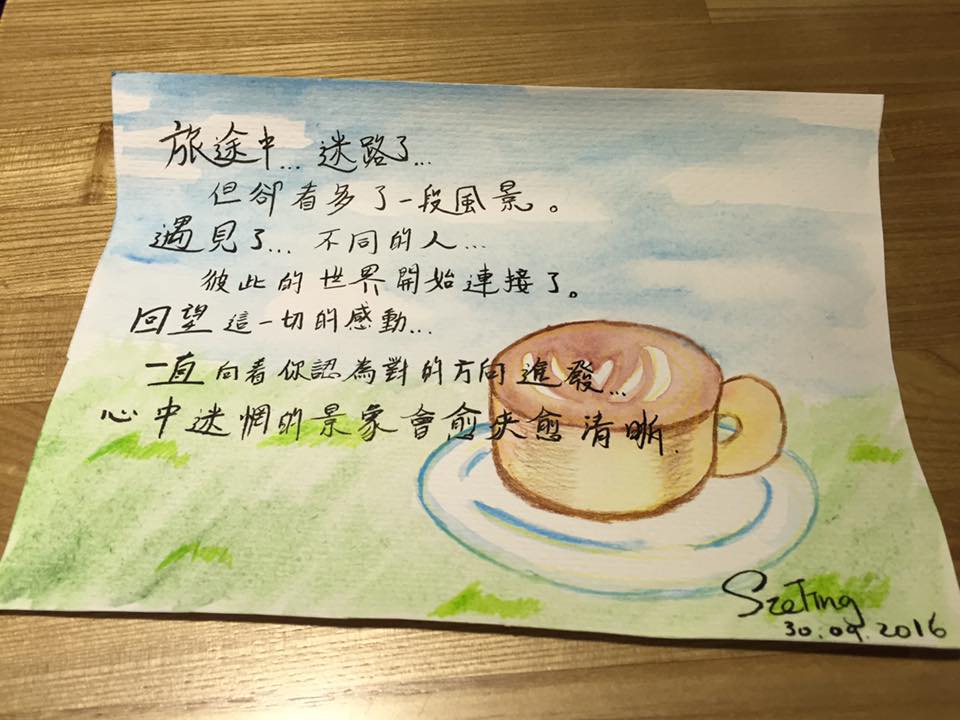 旅途中... 迷路了...
但卻看多了一段風景。
遇見了... 不同的人...
彼此的世界開始連接了。
回望這一切的感動...
一直向着你認為對的方向進發...
心中迷惘的景象會愈來愈清晰.
SzeTing
30.09.2016